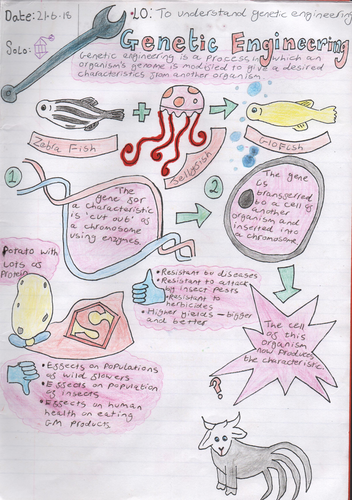 Date: 21-6-18
LO: To understand genetic engineering
Solo:
Genetic Engineering
Genetic engineering is a process in which an
organism's genome is modified to give a desired
characteristics from another organism.
+
Zebra Fish
Jellyfish
GloFish
1
The
gene for
a characteristic
is 'cut out' of
a chromosome
using enzymes.
2
The gene
is
transferred
to a cell of
another
organism and
inserted into
a chromosome
Potato with
Lots of
Protein
S
• Resistant to diseases
• Resistant to attack
by insect pests
• Resistant to
herbicides
• Higher yields - bigger
and better
The cell
of this
organism
now produces
the characteristic.
• Effects on populations
of wild flowers
• Effects on population
of insects
• Effects on human
health on eating
GM products
?